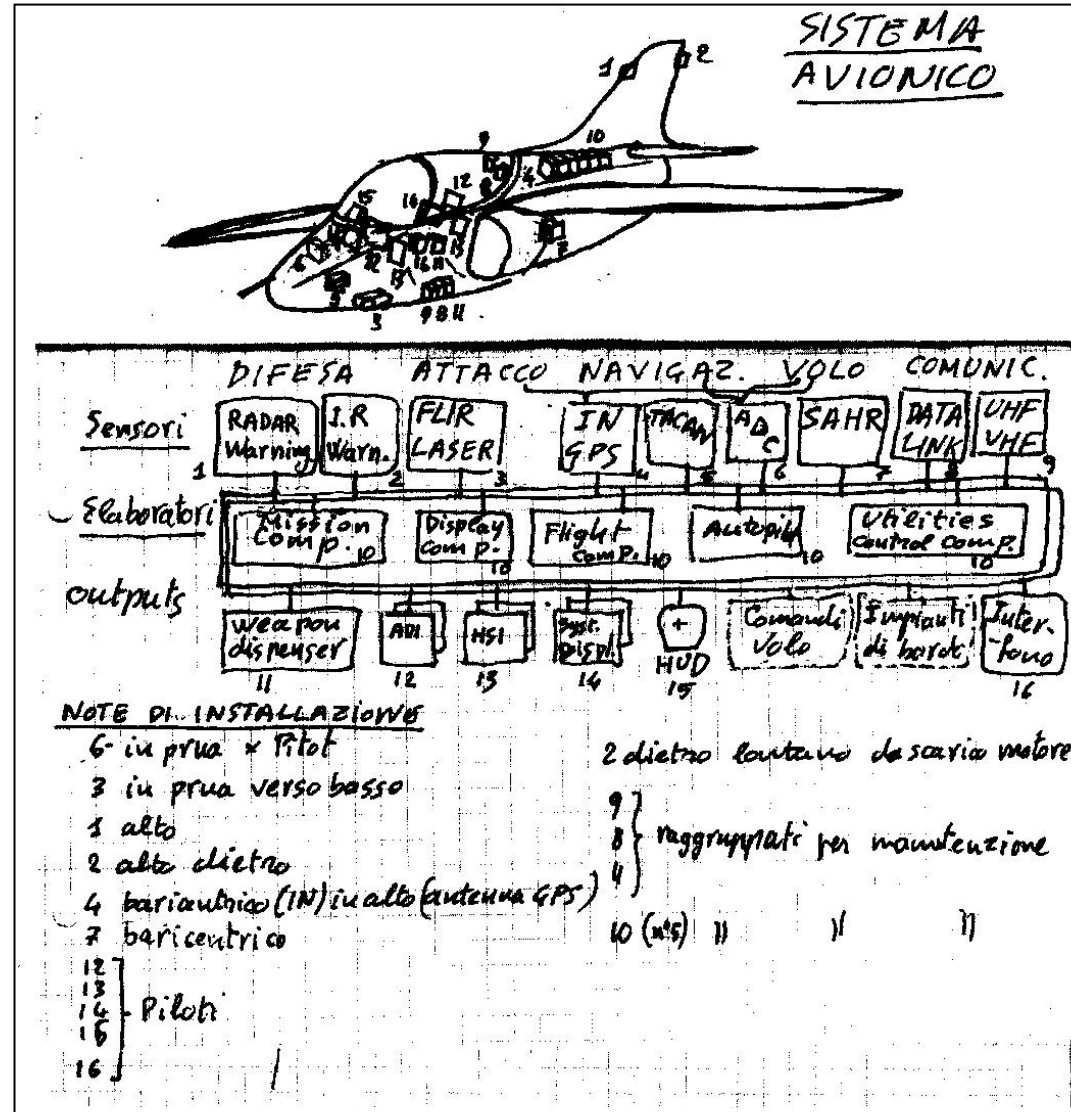 SISTEMA
AVIONICO
1 2
9 10
12 4
15 16
6 12 13 16 11 13 7
3 9 8 11
DIFESA ATTACCO NAVIGAZ. VOLO COMUNIC.
Sensori
RADAR Warning 1
I.R Warn. 2
FLIR LASER 3
IN GPS 4
TACAN 5
ADC 6
SAHR 7
DATA LINK 8
UHF VHF 9
Elaboratori
Mission Comp. 10
Display comp. 10
Flight comp. 10
Autopil. 10
Utilities control comp. 10
outputs
Weapon dispenser 11
ADI 12
HSI 13
Syst. Displ. 14
+ HUD 15
Comandi Volo
Impianti di bordo
Interfono 16
NOTE DI INSTALLAZIONE
6- in prua x Pitot
3 in prua verso basso
1 alto
2 alto dietro
4 baricentrico (IN) in alto (antenna GPS)
7 baricentrico
12
13
14
15
16
Piloti
2 dietro lontano da scarico motore
9
8
4
raggruppati per manutenzione
10 (n°5) " " "